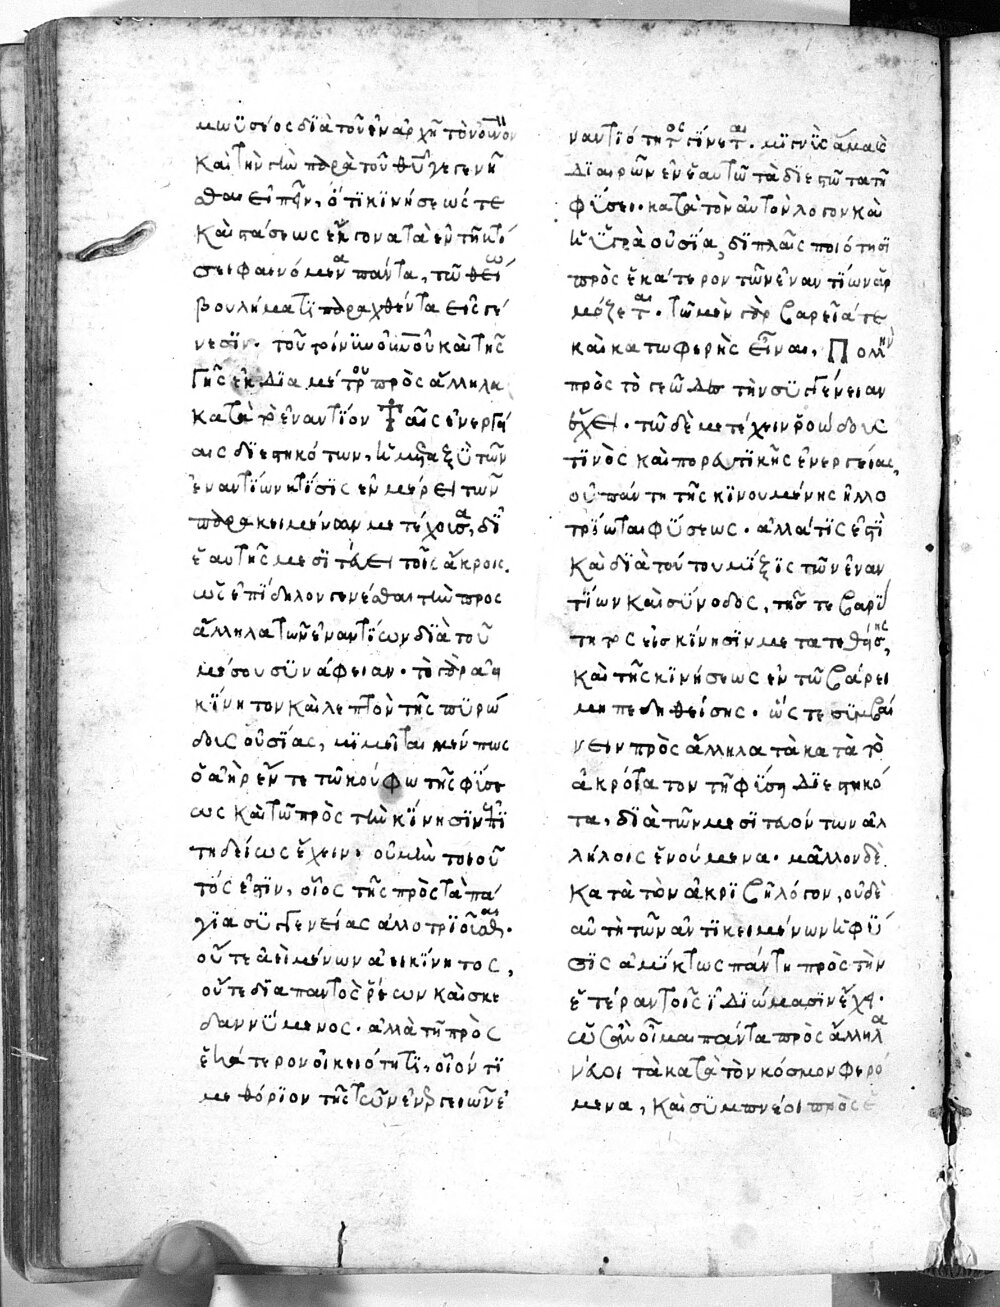 μωϋσέος διὰ τοῦ ἐν ἀρχῇ τὸν οὐνὸν
καὶ τὴν γῆν παρὰ τοῦ θῦ γεγενῆ
σθαι εἰπεῖν, ὅτι κινήσεώς τε
καὶ στάσεως ἔκγονα τὰ ἐν τῇ κτί
σει φαινόμενα πάντα, τῷ θείῳ
βουλήματι παραχθέντα εἰς γέ
νεσιν. τοῦ τοίνυν οὐνοῦ καὶ τῆς
γῆς ἐκ διαμέτρου πρὸς ἄλληλα
κατὰ τὸ ἐναντίον ταῖς ἐνεργεί
αις διεστηκότων, ἡ μεταξὺ τῶν
ἐναντίων κτίσις ἐν μέρει τῶν
παρακειμένων μετέχουσα, δι'
ἑαυτῆς μεσιτεύει τοῖς ἄκροις.
ὡς ἐπίδηλον γενέσθαι τὴν πρὸς
ἄλληλα τῶν ἐναντίων διὰ τοῦ
μέσου συνάφειαν. τὸ γὰρ ἀει
κίνητον καὶ λεπτὸν τῆς πυρώ
δους οὐσίας, μιμεῖται μέν πως
ὁ ἀὴρ ἔν τε τῷ κούφῳ τῆς φύσε
ως καὶ τῷ πρὸς τὴν κίνησιν ἐπι
τηδείως ἔχειν. οὐ μὴν τοιοῦ
τός ἐστιν, οἷος τῆς πρὸς τὰ πά
για συγγενείας ἀλλοτριοῦσθαι.
οὔτε ἀεὶ μένων ἀεικίνητος,
οὔτε διαπαντὸς ῥέων καὶ σκε
δαννύμενος. ἀλλὰ τῇ πρὸς
ἑκάτερον οἰκειότητι, οἷόν τι
μεθόριον τῆς τῶν ἐνεργειῶν ἐ
ναντιότητος γίνεται. μιγνὺς ἅμα καὶ
διαιρῶν ἐν ἑαυτῷ τὰ διεστῶτα τῇ
φύσει. κατὰ τὸν αὐτὸν λόγον καὶ
ἡ ὑγρὰ οὐσία, διπλαῖς ποιότησι
πρὸς ἑκάτερον τῶν ἐναντίων ἁρ
μόζεται. τῷ μὲν γὰρ βαρεῖά τε
καὶ κατωφερὴς εἶναι, πολλὴν
πρὸς τὸ γεῶδες τὴν συγγένειαν
ἔχει. τῷ δὲ μετέχειν ῥοώδους
τινὸς καὶ πορευτικῆς ἐνεργείας,
οὐ πάντη τῆς κινουμένης ἠλλο
τρίωται φύσεως. ἀλλά τις ἐστὶ
καὶ διὰ τούτου μίξις τῶν ἐναν
τίων καὶ σύνοδος, τῆς τε βαρύ
τητος εἰς κίνησιν μετατεθείσης,
καὶ τῆς κινήσεως ἐν τῷ βάρει
μὴ πεδηθείσης. ὥστε συμβαί
νειν πρὸς ἄλληλα τὰ κατὰ τὸ
ἀκρότατον τῇ φύσει διεστηκό
τα, διὰ τῶν μεσιτευόντων ἀλ
λήλοις ἑνούμενα. μᾶλλον δὲ
κατὰ τὸν ἀκριβῆ λόγον, οὐδὲ
αὐτὴ τῶν ἀντικειμένων ἡ φύ
σις ἀμίκτως πάντη πρὸς τὴν
ἑτέραν τοῖς ἰδιώμασιν ἔχει.
ὡς ἂν οἶμαι πάντα πρὸς ἄλληλα
νεύοι τὰ κατὰ τὸν κόσμον φερό
μενα, καὶ συμπνέοι πρὸς ἑ